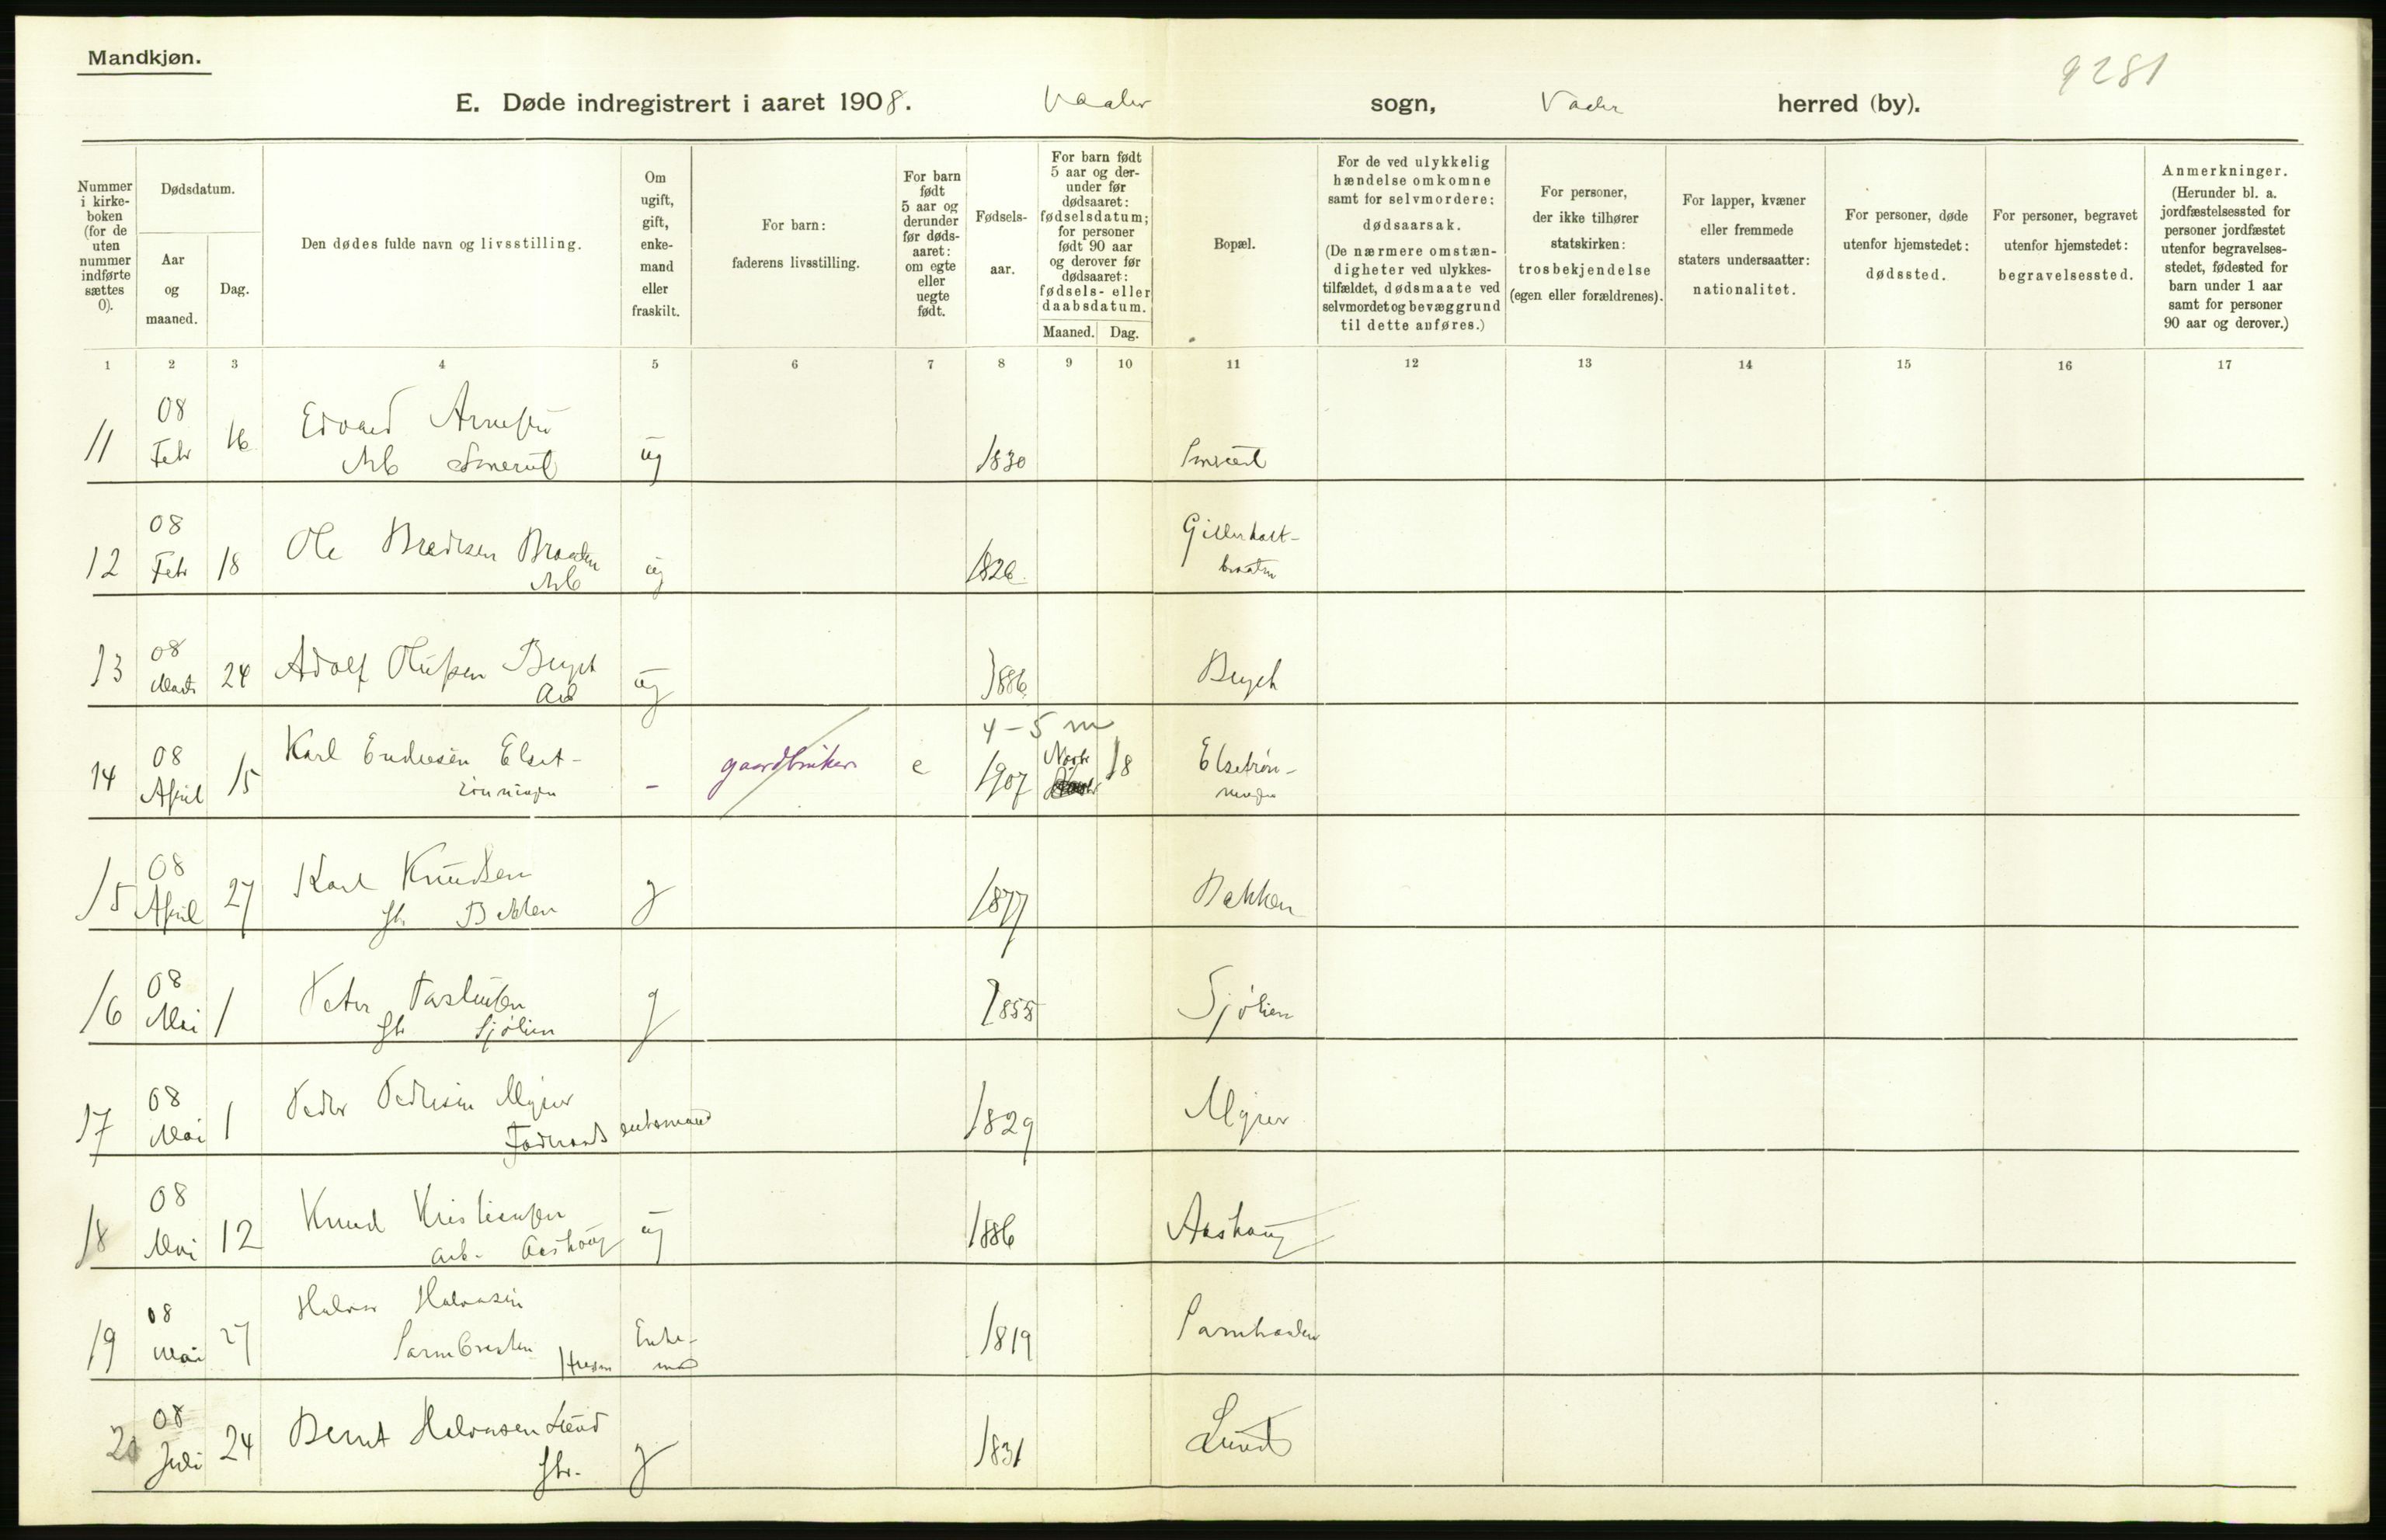 Mandkjøn.
9281
E. Døde indregistrert i aaret 1908. Vaaler sogn, Vaaler herred (by).
Nummer i kirke-boken (for de uten nummer indførte sættes 0).
Dødsdatum.
Aar og maaned.
Dag.
Den dødes fulde navn og livsstilling.
Om ugift, gift, enke-mand eller fraskilt.
For barn: faderens livsstilling.
For barn født 5 aar og derunder før døds-aaret: om egte eller uegte født.
Fødsels-aar.
For barn født 5 aar og der-under før dødsaaret: fødselsdatum; for personer født 90 aar og derover før dødsaaret: fødsels- eller daabsdatum.
Maaned.
Dag.
Bopæl.
For de ved ulykkelig hændelse omkomne samt for selvmordere: dødsaarsak. (De nærmere omstæn-digheter ved ulykkes-tilfældet, dødsmaate ved selvmordet og bevæggrund til dette anføres.)
For personer, der ikke tilhører statskirken: trosbekjendelse (egen eller forældrenes).
For lapper, kvæner eller fremmede staters undersaatter: nationalitet.
For personer, døde utenfor hjemstedet: dødssted.
For personer, begravet utenfor hjemstedet: begravelsessted.
Anmerkninger. (Herunder bl. a. jordfæstelsessted for personer jordfæstet utenfor begravelses-stedet, fødested for barn under 1 aar samt for personer 90 aar og derover.)
1 2 3 4 5 6 7 8 9 10 11 12 13 14 15 16 17
11 08 Febr 16 Edvard ug 1830
12 08 Febr 18 Ole Bredesen Braaten ug 1826 Gillerholt-braaten
13 08 Marts 24 Adolf Olufsen Arb ug 1886
4-5 m
14 08 April 15 Karl Endresen Elset-rönningen - gaardbruker e 1907 Novbr 18 Elsetrön-ningen
15 08 April 27 Karl Knudsen Bakken g 1877 Bakken
16 08 Mai 1 Peter Sjölien g 1855 Sjölien
17 08 Mai 1 Peder Pedersen Myrer Föderaads enkemand 1829 Myrer
18 08 Mai 12 Knud Kristiansen arb. Aashaug ug 1886 Aashaug
19 08 Mai 27 Halvor Halvorsen Enke-md 1819
20 08 Juli 24 Bernt Halvorsen Lund g 1831 Lund